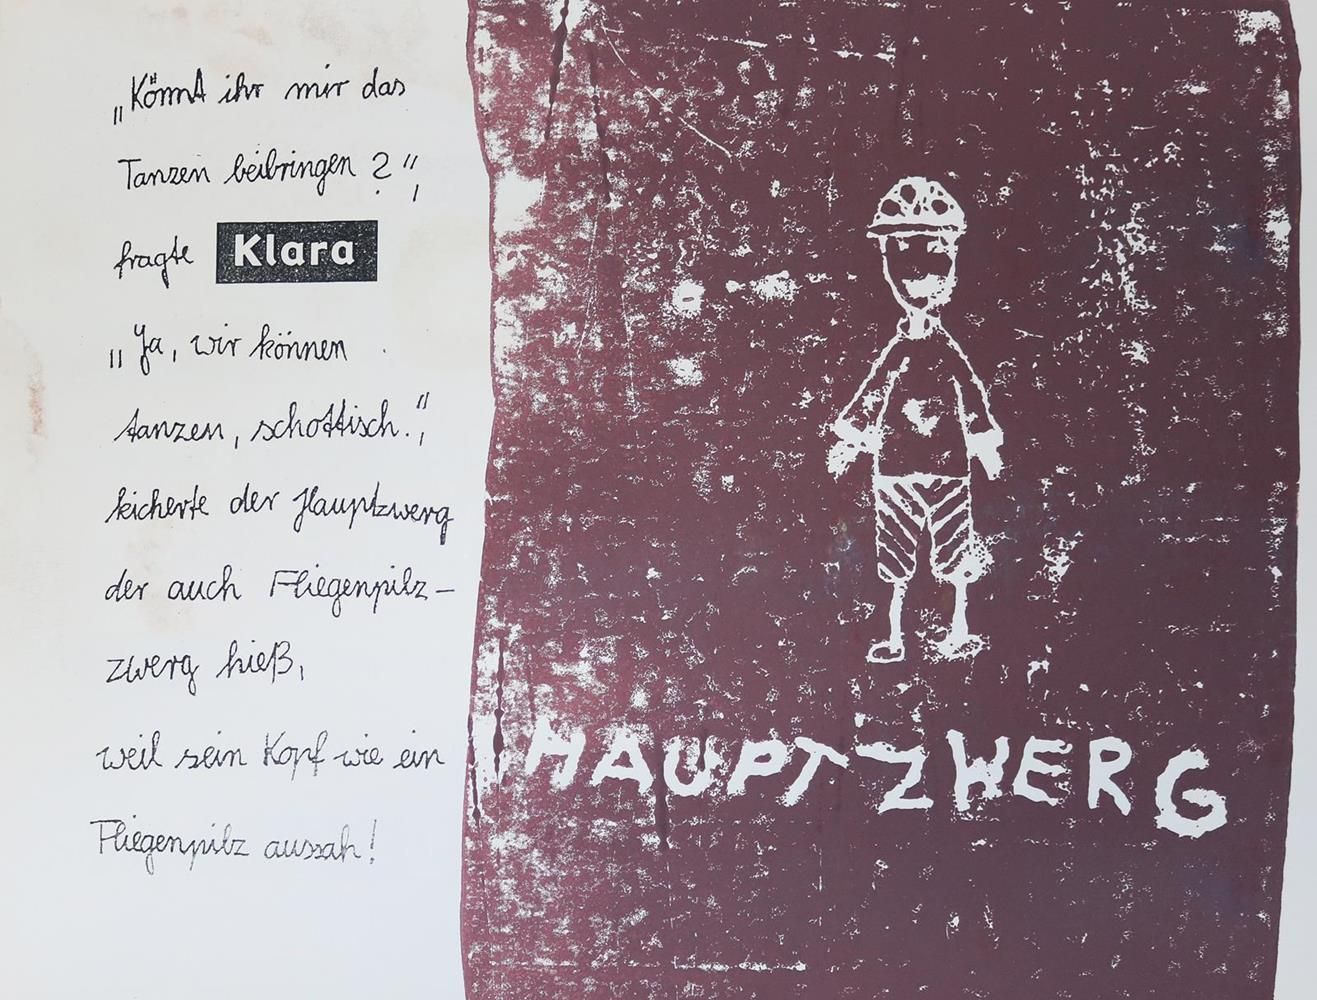 „Könnt ihr mir das
Tanzen beibringen?",
fragte Klara
„Ja, wir können
tanzen, schottisch.",
kicherte der Hauptzwerg
der auch Fliegenpilz-
zwerg hieß,
weil sein Kopf wie ein
Fliegenpilz aussah!
HAUPTZWERG